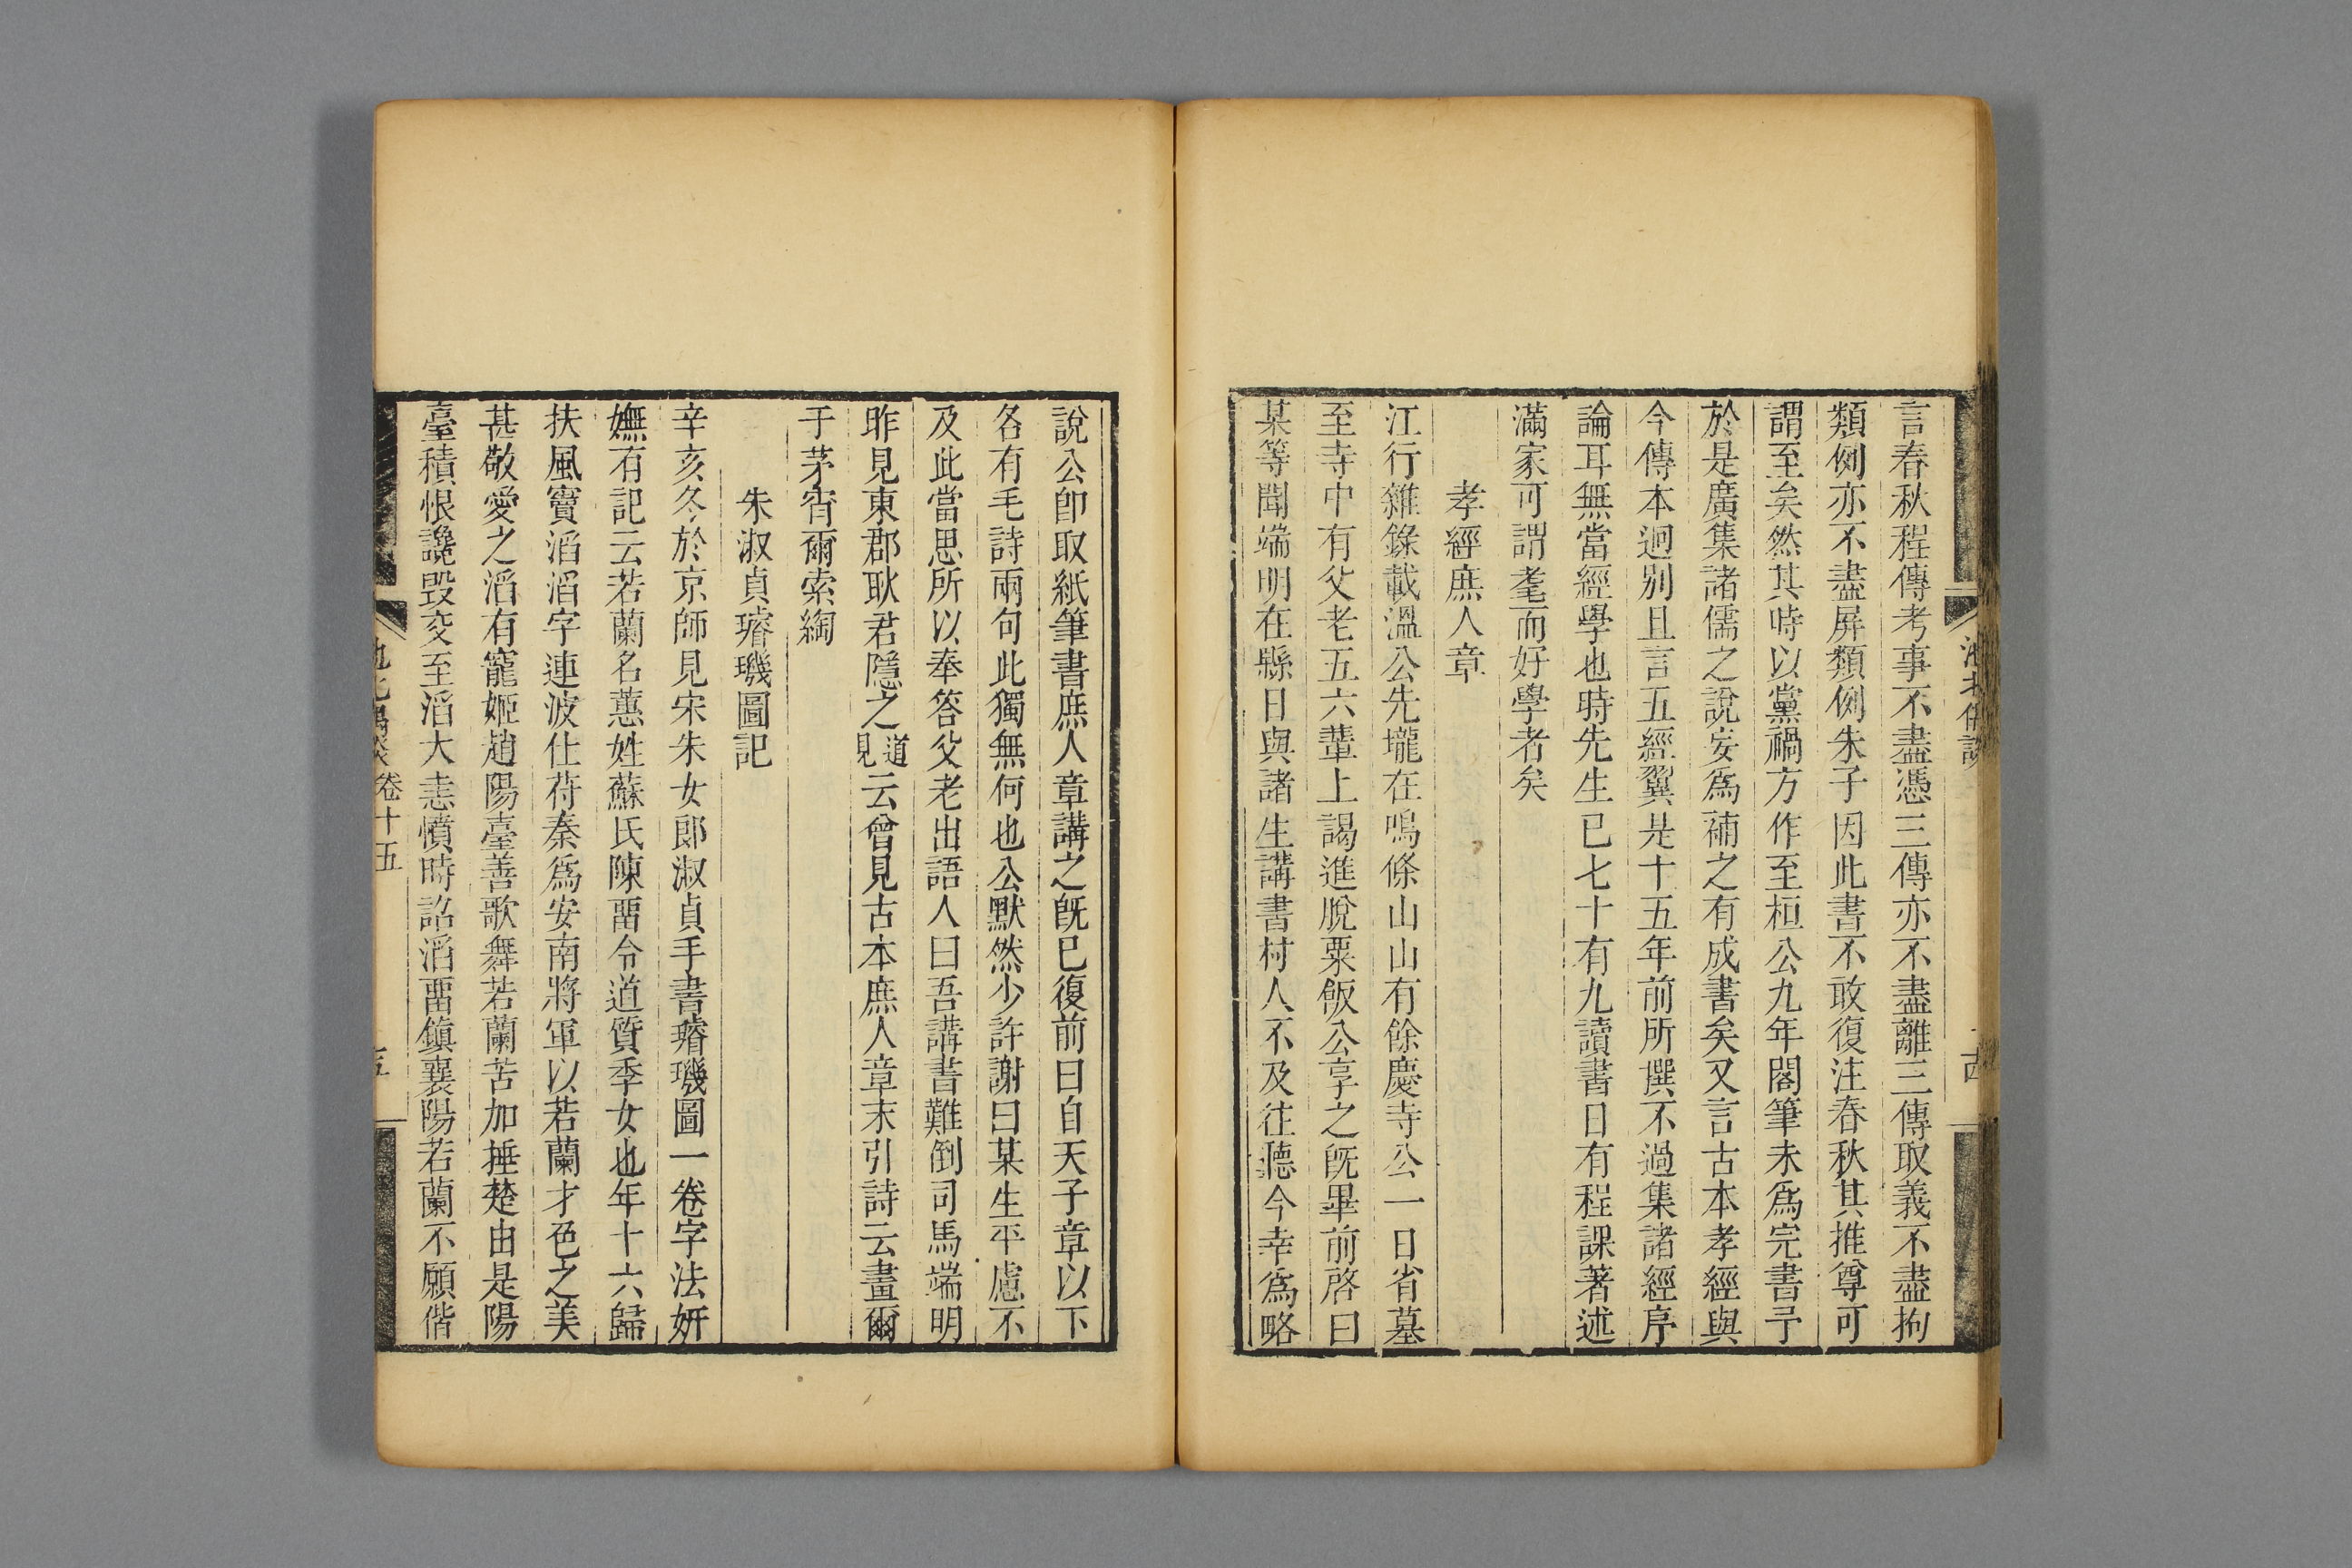 言春秋程傳考事不盡憑三傳亦不盡離三傳取義不盡拘
類例亦不盡屏類例朱子因此書不敢復注春秋其推尊可
謂至矣然其時以黨禍方作至桓公九年閣筆未爲完書予
於是廣集諸儒之說妄爲補之有成書矣又言古本孝經與
今傳本迥别且言五經翼是十五年前所撰不過集諸經序
論耳無當經學也時先生已七十有九讀書日有程課著述
滿家可謂耄而好學者矣
孝經庶人章
江行雜錄載溫公先壠在鳴條山山有餘慶寺公一日省墓
至寺中有父老五六輩上謁進脫粟飯公享之旣畢前啓曰
某等聞端明在縣日與諸生講書村人不及往聽今幸爲略
說公卽取紙筆書庶人章講之旣已復前曰自天子章以下
各有毛詩兩句此獨無何也公默然少許謝曰某生平慮不
及此當思所以奉答父老出語人曰吾講書難倒司馬端明
昨見東郡耿君隱之道見云曾見古本庶人章末引詩云晝爾
于茅宵爾索綯
朱淑貞璿璣圖記
辛亥冬於京師見宋朱女郎淑貞手書璿璣圖一卷字法妍
嫵有記云若蘭名蕙姓蘇氏陳畱令道質季女也年十六歸
扶風竇滔滔字連波仕苻秦爲安南將軍以若蘭才色之美
甚敬愛之滔有寵姬趙陽臺善歌舞若蘭苦加捶楚由是陽
臺積恨讒毀交至滔大恚憤時詔滔畱鎭襄陽若蘭不願偕
卷十五